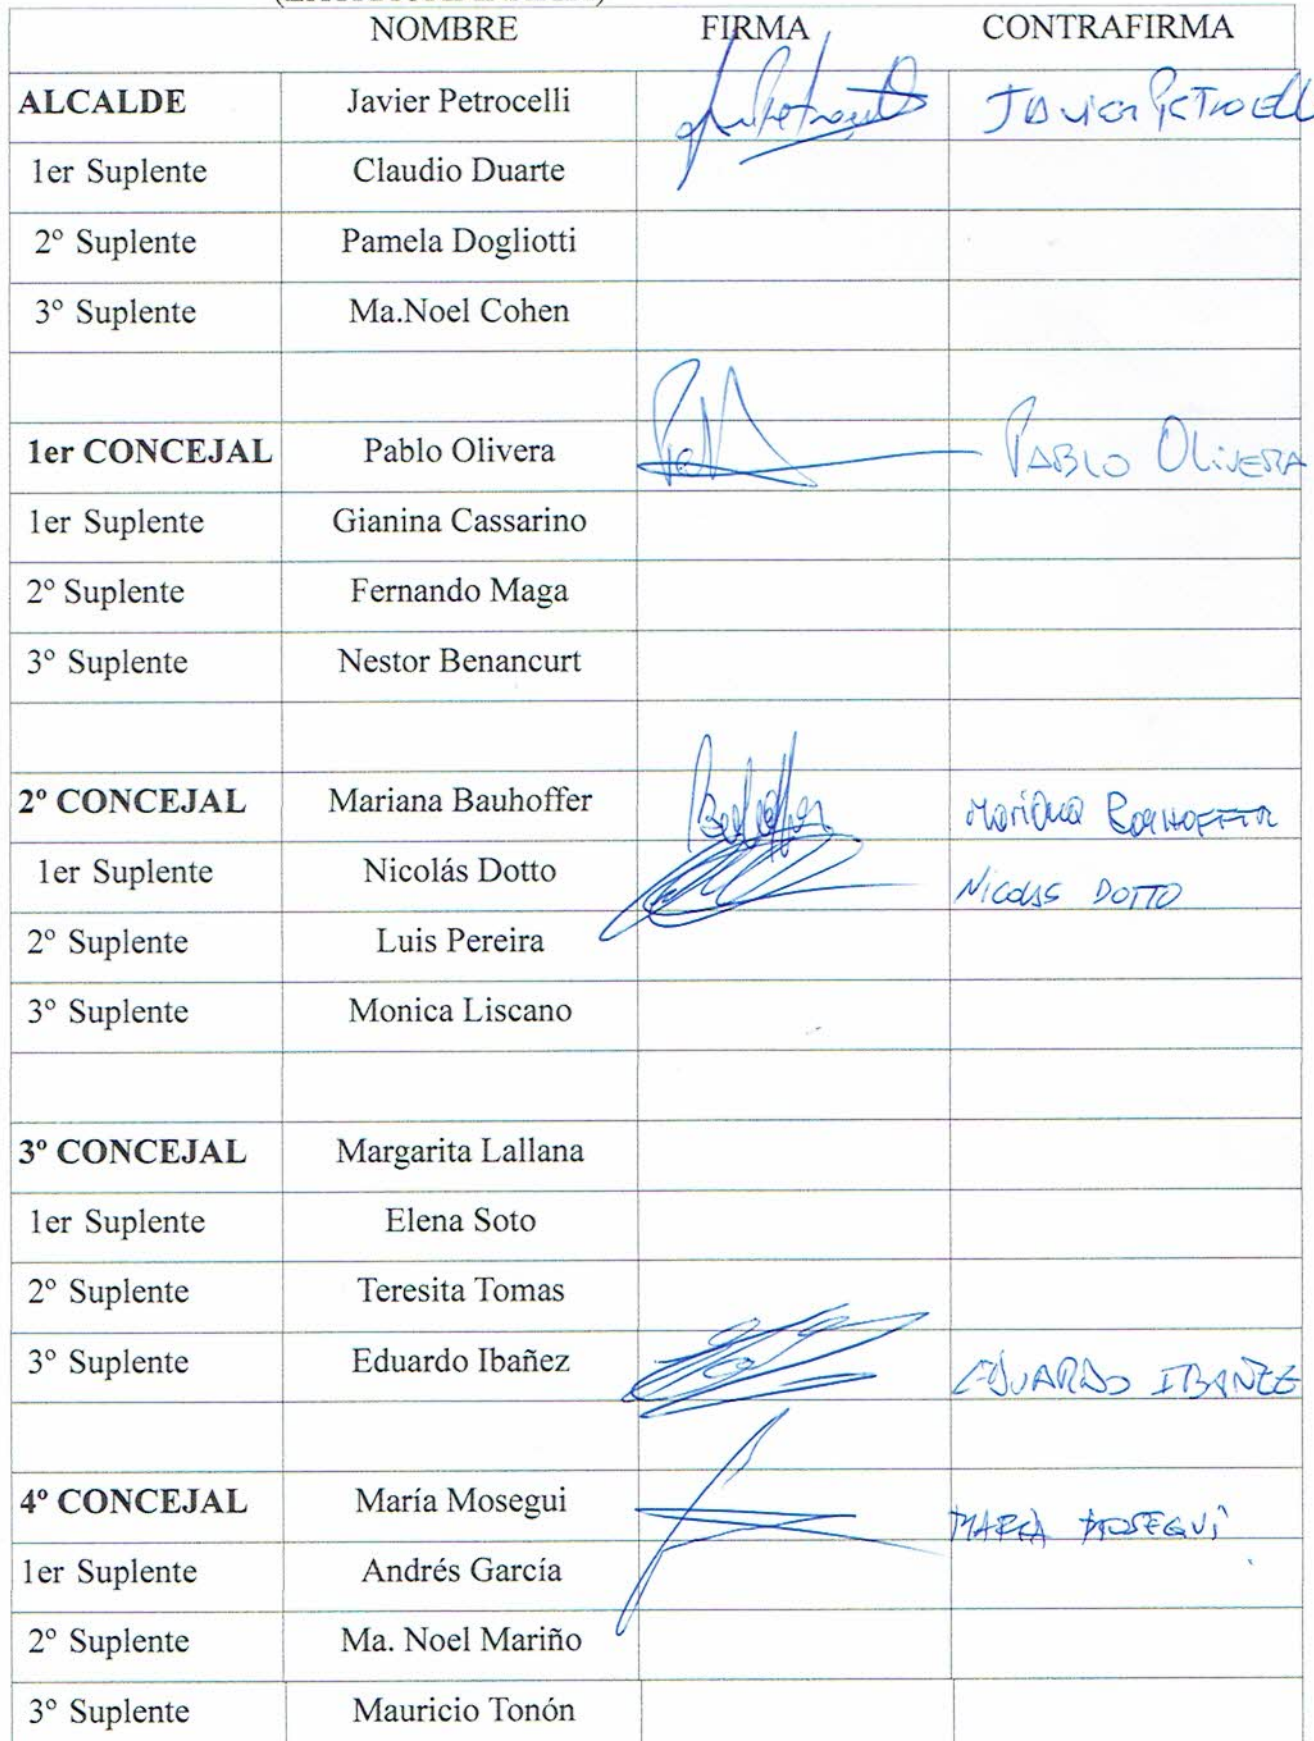 NOMBRE FIRMA CONTRAFIRMA
ALCALDE Javier Petrocelli Javier Petrocell
1er Suplente Claudio Duarte
2º Suplente Pamela Dogliotti
3º Suplente Ma.Noel Cohen
1er CONCEJAL Pablo Olivera PABLO OLiVERA
1er Suplente Gianina Cassarino
2º Suplente Fernando Maga
3º Suplente Nestor Benancurt
2º CONCEJAL Mariana Bauhoffer Mariana BAUHOFFER
1er Suplente Nicolás Dotto NICOLAS DOTTO
2º Suplente Luis Pereira
3º Suplente Monica Liscano
3º CONCEJAL Margarita Lallana
1er Suplente Elena Soto
2º Suplente Teresita Tomas
3º Suplente Eduardo Ibañez EDUARDO IBAÑEZ
4º CONCEJAL María Mosegui MARIA MOSEGUI
1er Suplente Andrés García
2º Suplente Ma. Noel Mariño
3º Suplente Mauricio Tonón